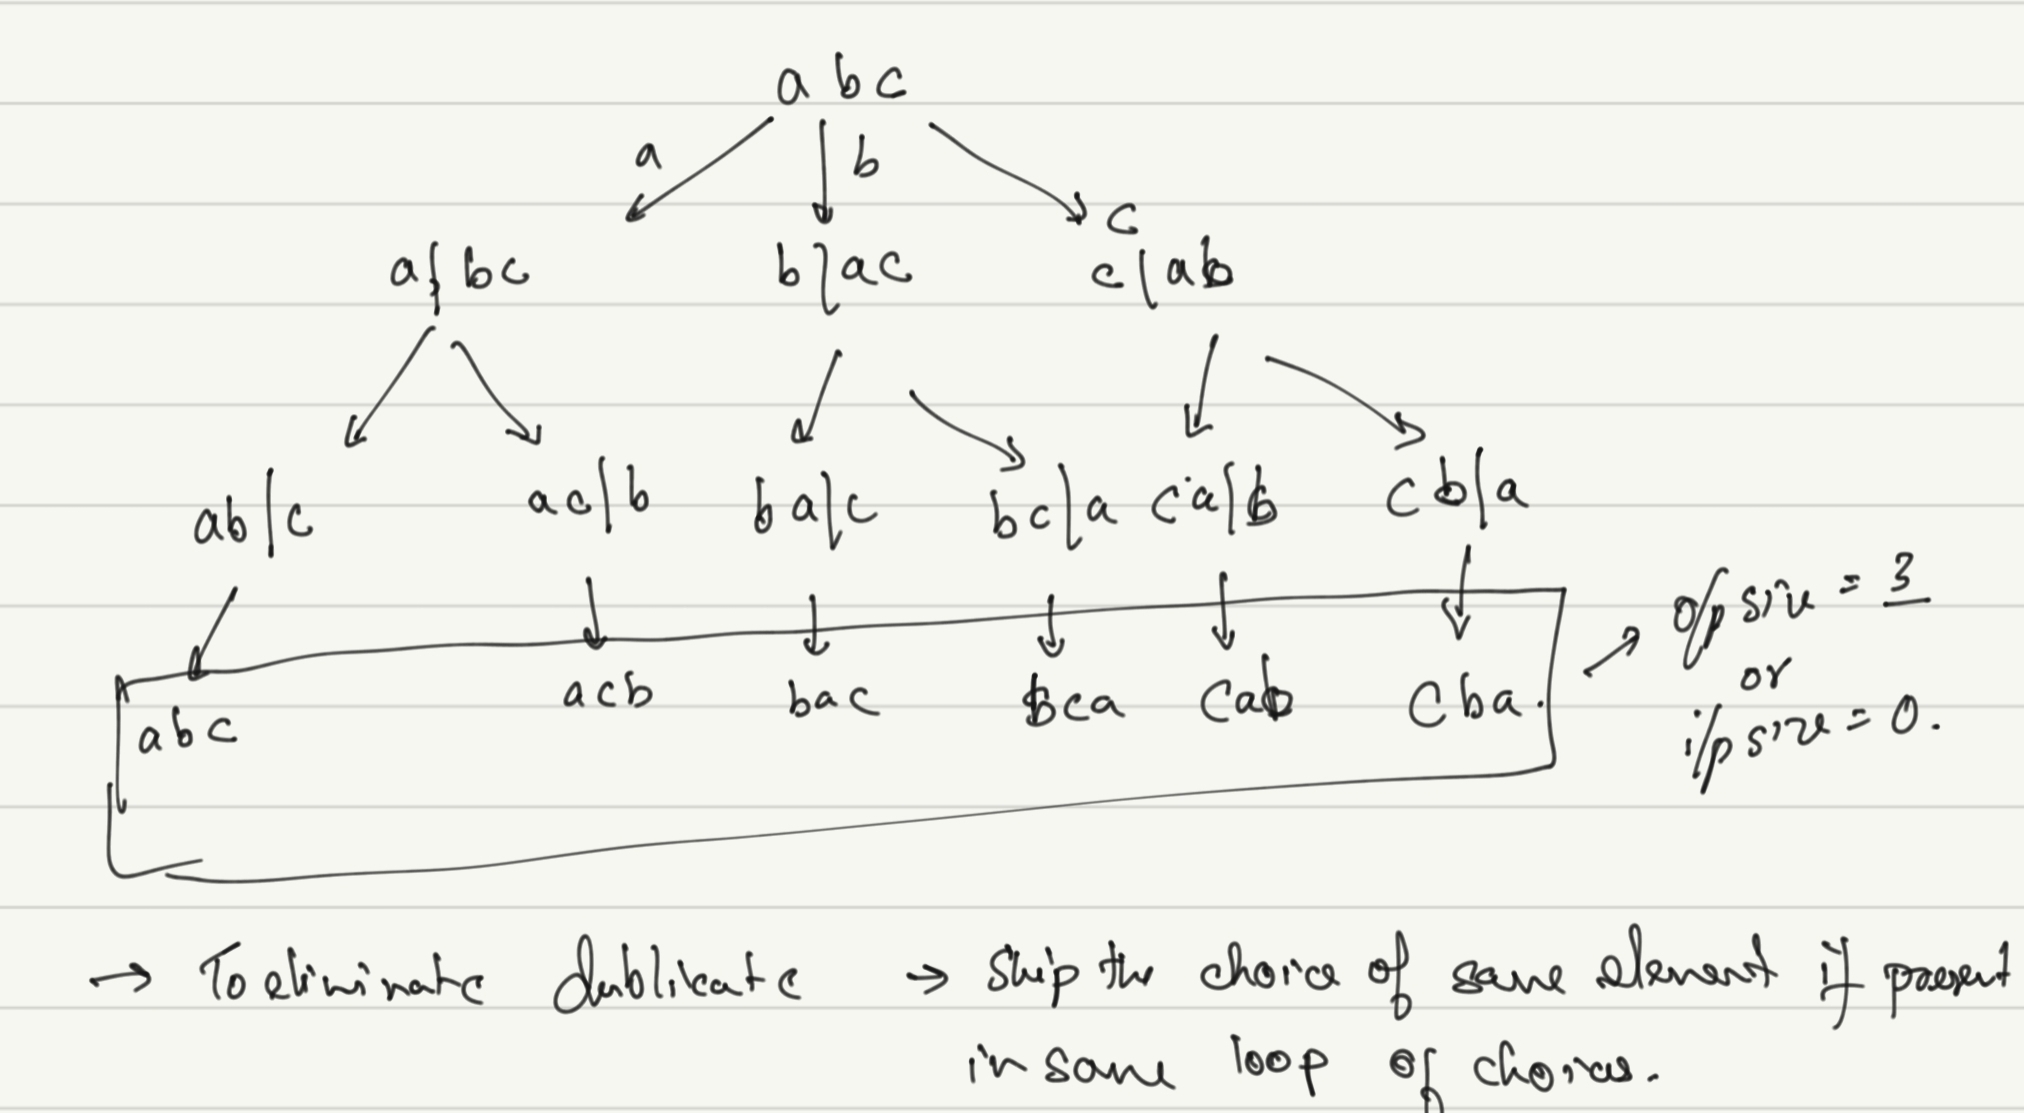 a b c
a
b
c
a|bc
b|ac
c|ab
ab|c
ac|b
ba|c
bc|a
ca|b
cb|a
abc
acb
bac
bca
Cab
Cba.
o/p size = 3
or
i/p size = 0.
→ To eliminate dublicate → Skip the choice of same element if present
in same loop of choices.